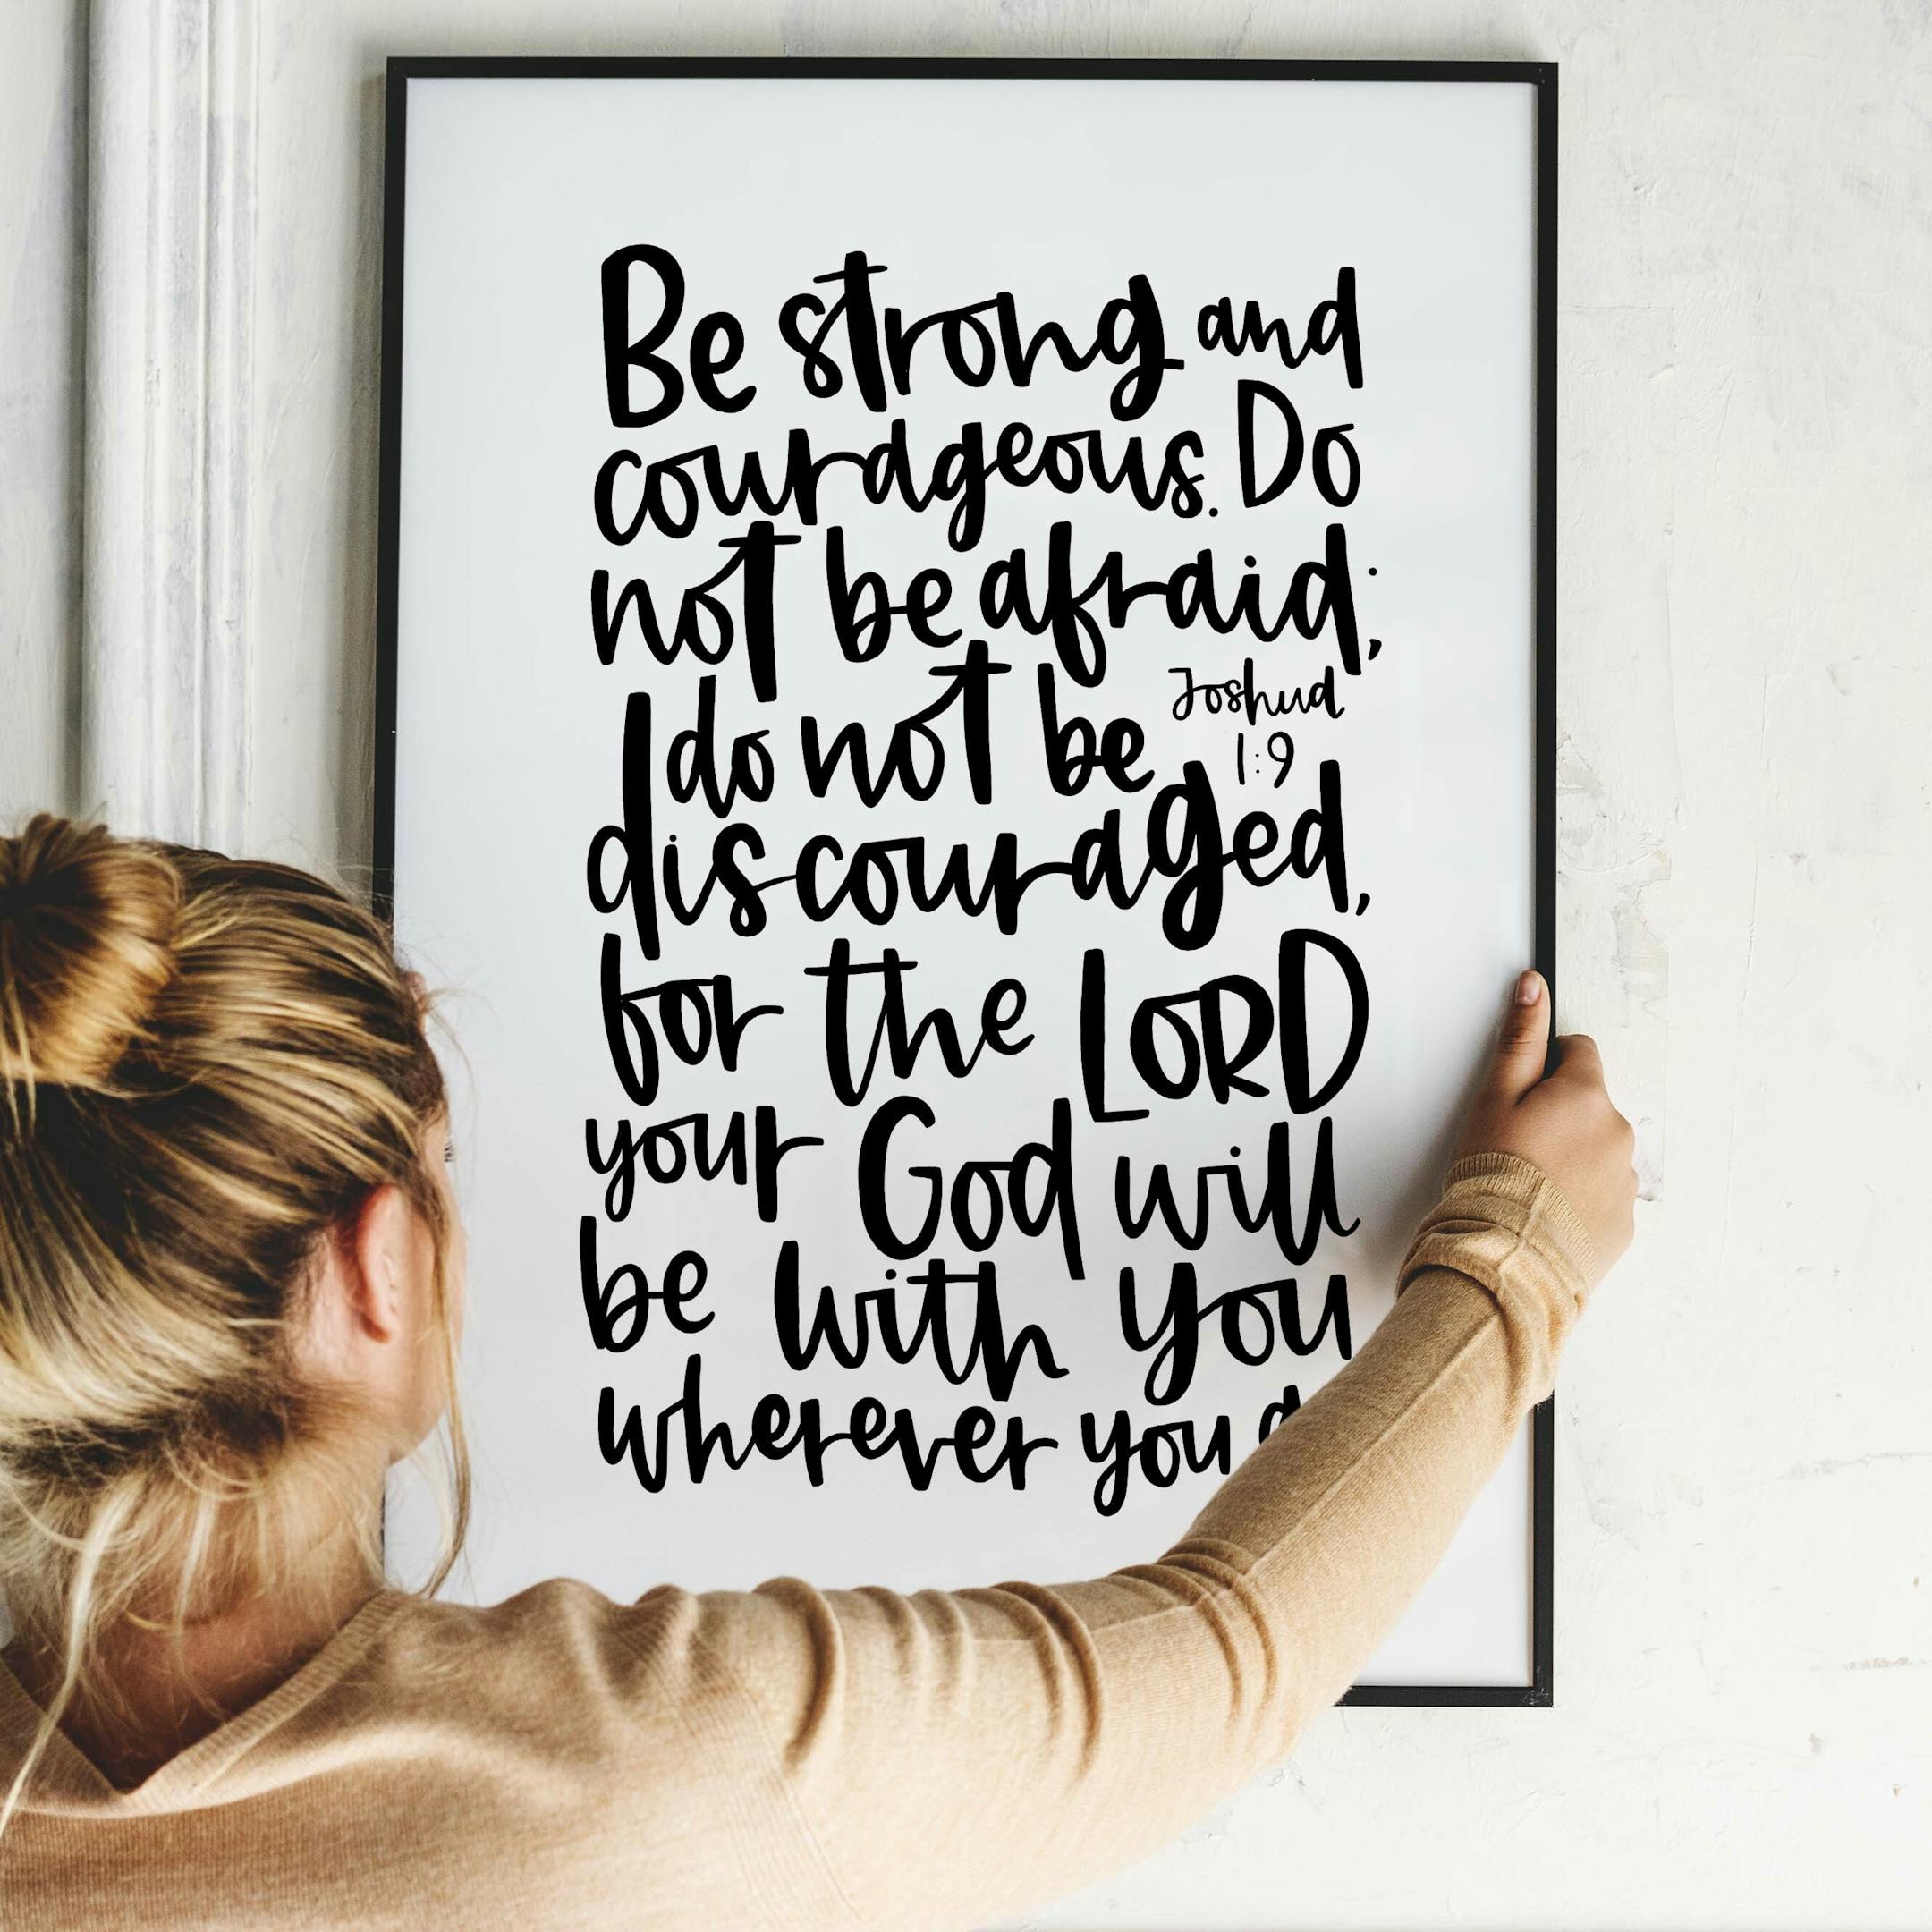 Be strong and
courageous. Do
not be afraid;
do not be
Joshua
1:9
discouraged,
for the LORD
your God will
be with you
wherever you